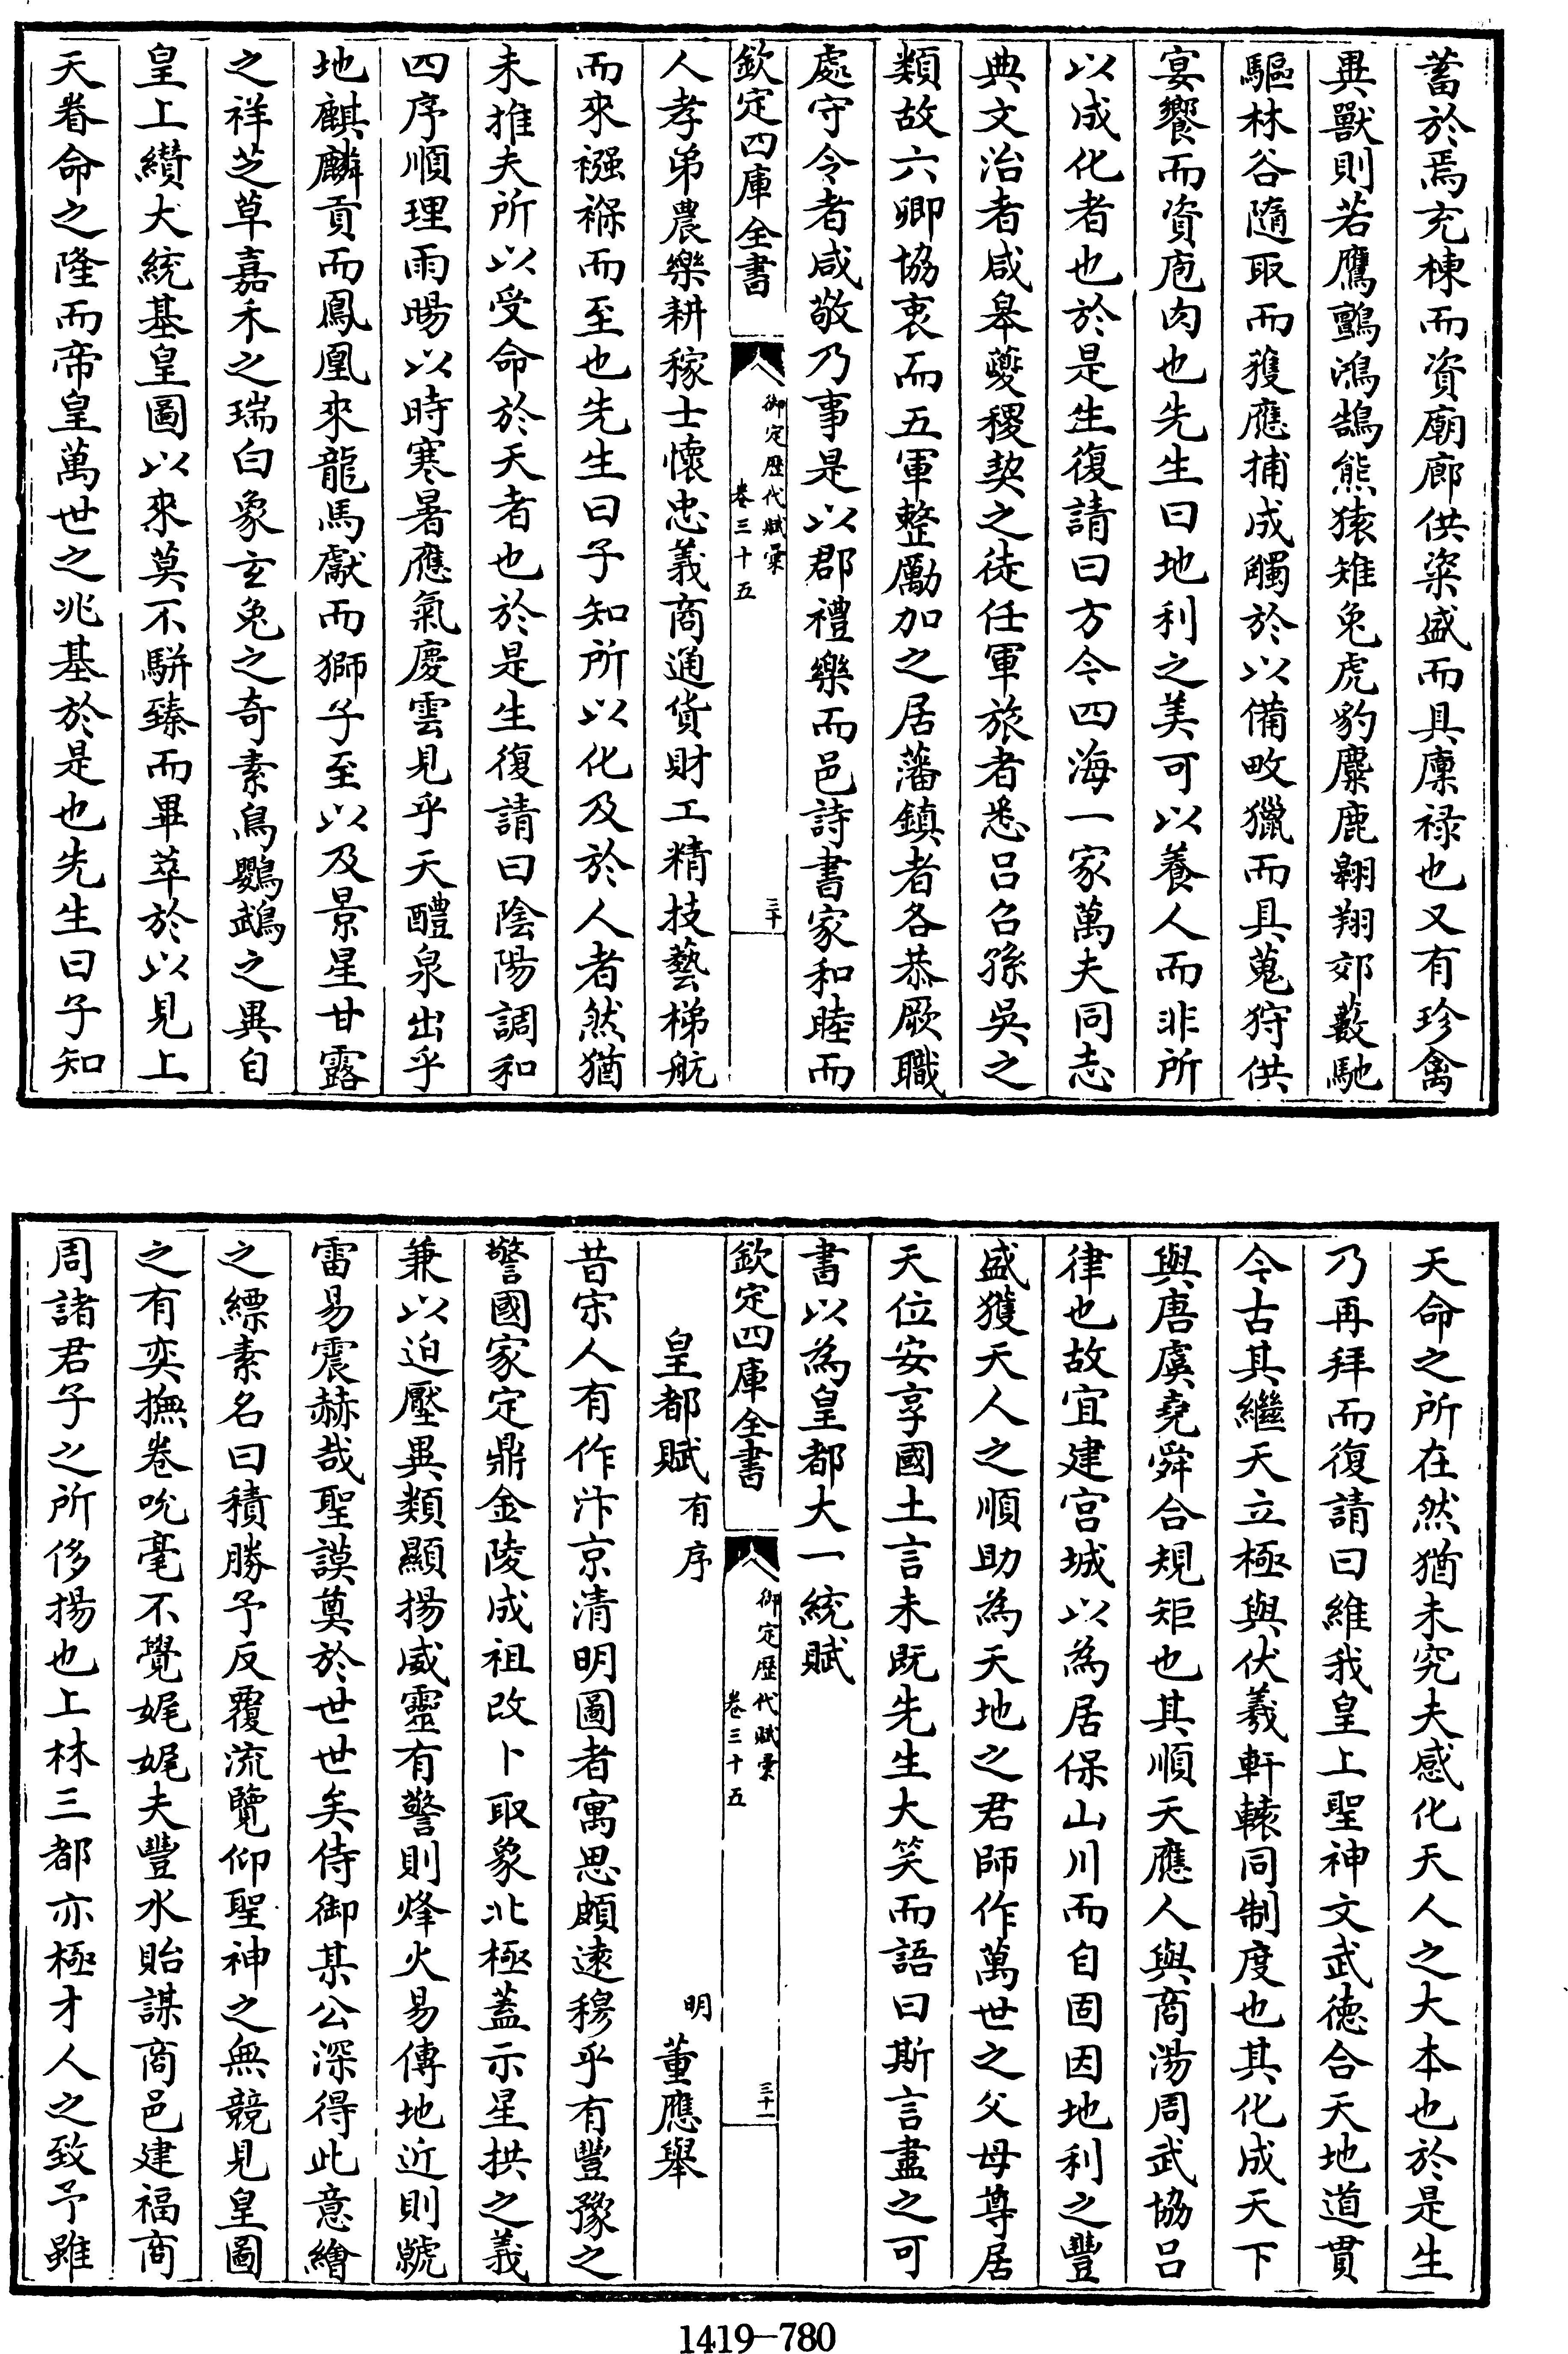 蓄於焉充棟而資廟廊供粢盛而具廩禄也又有珍禽
異獸則若鷹鸇鴻鵠熊猿雉兔虎豹麋鹿翱翔郊藪馳
驅林谷隨取而獲應捕成觸於以備畋獵而具蒐狩供
宴饗而資庖肉也先生曰地利之美可以養人而非所
以成化者也於是生復請曰方今四海一家萬夫同志
典文治者咸皋夔稷契之徒任軍旅者悉吕召孫吳之
類故六卿協衷而五軍整勵加之居藩鎮者各恭厥職
處守令者咸敬乃事是以郡禮樂而邑詩書家和睦而
欽定四庫全書
御定歴代賦彙
卷三十五
三十
人孝弟農樂耕稼士懷忠義商通貨財工精技藝梯航
而來襁褓而至也先生曰子知所以化及於人者然猶
未推夫所以受命於天者也於是生復請曰陰陽調和
四序順理雨暘以時寒暑應氣慶雲見乎天醴泉出乎
地麒麟貢而鳳凰來龍馬獻而獅子至以及景星甘露
之祥芝草嘉禾之瑞白象玄兔之奇素鳥鸚鵡之異自
皇上纘大統基皇圖以來莫不駢臻而畢萃於以見上
天眷命之隆而帝皇萬世之兆基於是也先生曰子知
天命之所在然猶未究夫感化天人之大本也於是生
乃再拜而復請曰維我皇上聖神文武德合天地道貫
今古其繼天立極與伏羲軒轅同制度也其化成天下
與唐虞堯舜合規矩也其順天應人與商湯周武協吕
律也故宜建宫城以為居保山川而自固因地利之豐
盛獲天人之順助為天地之君師作萬世之父母尊居
天位安享國土言未既先生大笑而語曰斯言盡之可
書以為皇都大一統賦
欽定四庫全書
御定歴代賦彙
卷三十五
三十一
皇都賦 有序 明 董應舉
昔宋人有作汴京清明圖者寓思頗逺穆乎有豐豫之
警國家定鼎金陵成祖改卜取象北極蓋示星拱之義
兼以迫壓異類顯揚威靈有警則烽火易傳地近則虩
雷易震赫哉聖謨奠於世世矣侍御某公深得此意繪
之縹素名曰積勝予反覆流覽仰聖神之無競見皇圖
之有奕撫卷吮毫不覺娓娓夫豐水貽謀商邑建福商
周諸君子之所侈揚也上林三都亦極才人之致予雖
1419—780